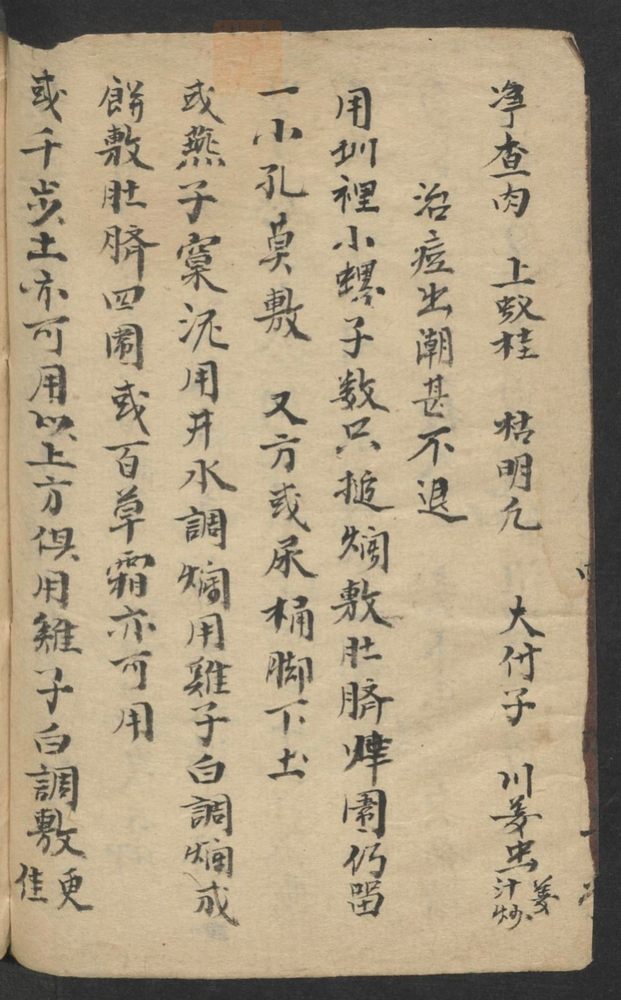 净查肉　上蚁桂　枯明凢　大付子　川姜虫姜汁炒
治痘出潮甚不退
用圳裡小螺子数只搥爛敷肚臍圍仍留
一小孔莫敷　又方或尿桶脚下土
或燕子窠泥用井水調爛用雞子白調爛成
餅敷肚臍四圍或百草霜亦可用
或千步土亦可用以上方俱用雞子白調敷更佳